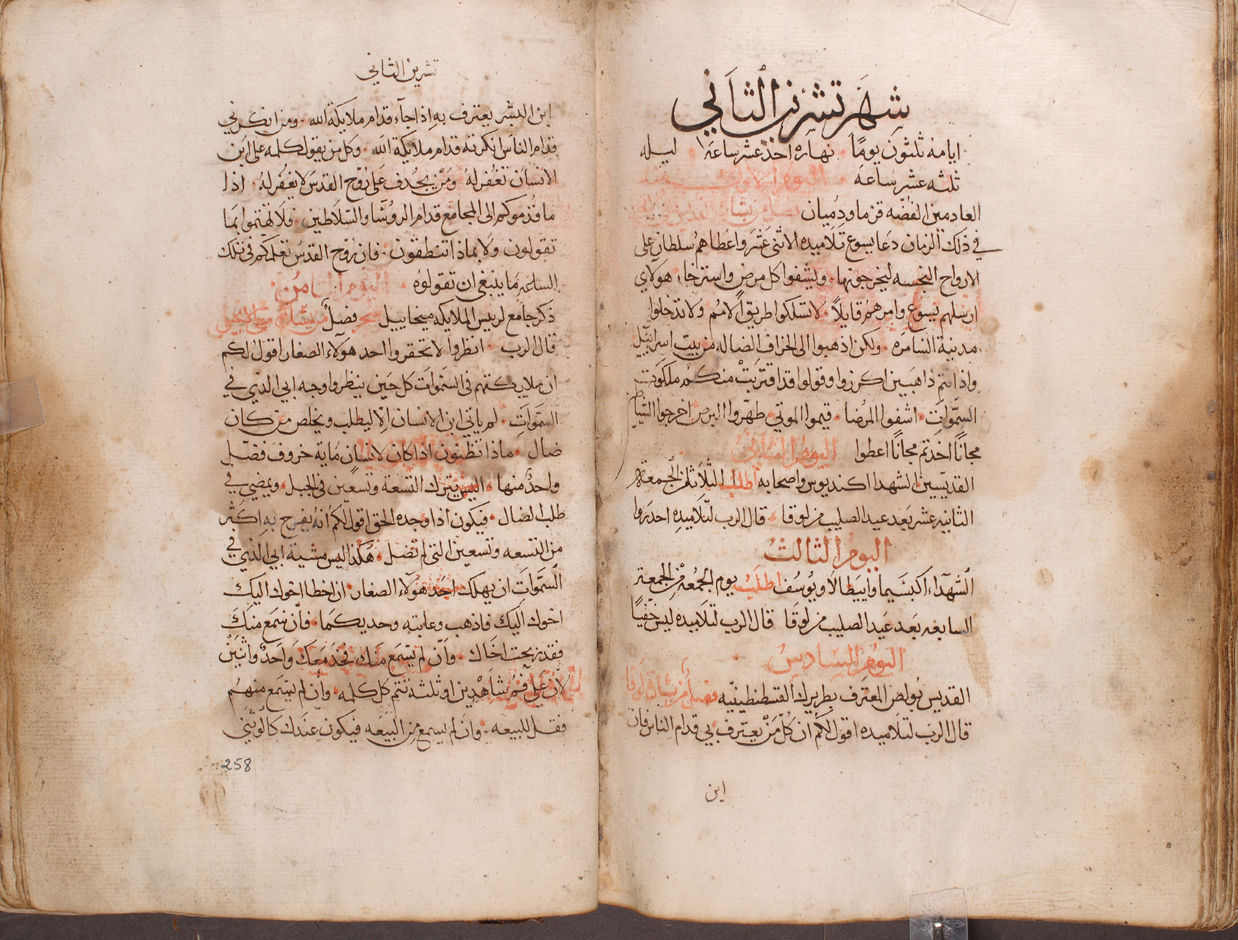 شهر تشرين الثاني
ايامه ثلثون يومًا نهاره احد عشر ساعة ليله
ثلثه عشر ساعه اليوم الاول
العادمين الفضه قزما ودميان
في ذلك الزمان دعا يسوع تلاميذه الاثنى عشر واعطاهم سلطان على
الارواح النجسه ليخرجونها ويشفوا كل مرض واسترخا هولاي
ارسلهم يسوع وامرهم قايلاً لا تسلكوا طريق الامم ولا تدخلوا
مدينة السامره ولكن اذهبوا الى الخراف الضاله من بيت اسراييل
واذا انتم ذاهبين اكرزوا وقولوا قد اقتربت منكم ملكوت
السموات اشفوا المرضا قيموا الموتي طهروا البرص اخرجوا الشياطين
مجانًا اخدتم مجانًا اعطوا اليوم الثاني
القديسين الشهدا اكنديوس واصحابه اطلب الثلاثا في الجمعة
الثانيه عشر بعد عيد الصليب من لوقا قال الرب لتلاميذه احدروا
اليوم الثالث
الشهدآء اكبسيما وابيطالا ويوسف اطلب يوم الجمعة من الجمعة
السابعه بعد عيد الصليب من لوقا قال الرب لتلاميذه ليس خفيًا
اليوم السادس
القديس بولص المعترف بطريرك القسطنطينيه فصل من بشارة لوقا
قال الرب لتلاميذه اقول لكم ان كل من يعترف بي قدام الناس فان
ابن
تشرين الثاني
ابن البشر يعترف به اذا جآء قدام ملايكة الله ومن انكرني
قدام الناس انكرته قدام ملايكة الله وكل من يقول كلمه على ابن
الانسان تغفر له ومن يجدف على روح القدس لا يغفر له اذا
ما قدموكم الى المجامع قدام الروسآ والسلاطين فلا تهتموا بما
تقولون ولا بماذا تنطقون فان روح القدس تعلمكم في تلك
الساعه ما ينبغي ان تقولوه اليوم الثامن
ذكر جامع لريس الملايكه ميخاييل فصل من بشارة متى
قال الرب انظروا لا تحقروا احد هولآء الصغار اقول لكم
ان ملايكتهم في السموات كل حين ينظروا وجه ابي الذي في
السموات لم ياتي ابن الانسان الا ليطلب ويخلص من كان
ضال ماذا تظنون اذا كان لانسان مايه خروف فضل
واحد منها اليس يترك التسعة وتسعين في الجبل ويمضي في
طلب الضال فيكون اذا وجده الحق اقول لكم انه يفرح به اكثر
من التسعه وتسعين التي لم تضل هكذا ليس مشية ابي الذي في
السموات ان يهلك احد هولآء الصغار ان اخطا اخوك اليك
اخوك اليك فاذهب وعاتبه وحديكما فان سمع منك
فقد ربحت اخاك وان لم يسمع منك فخذ معك واحد واثنين
لان على فم شاهدين او ثلثه تتم كل كلمه وان لم يسمع منهم
فقل للبيعه وان لم يسمع من البيعه فيكون عندك كالوثني
258